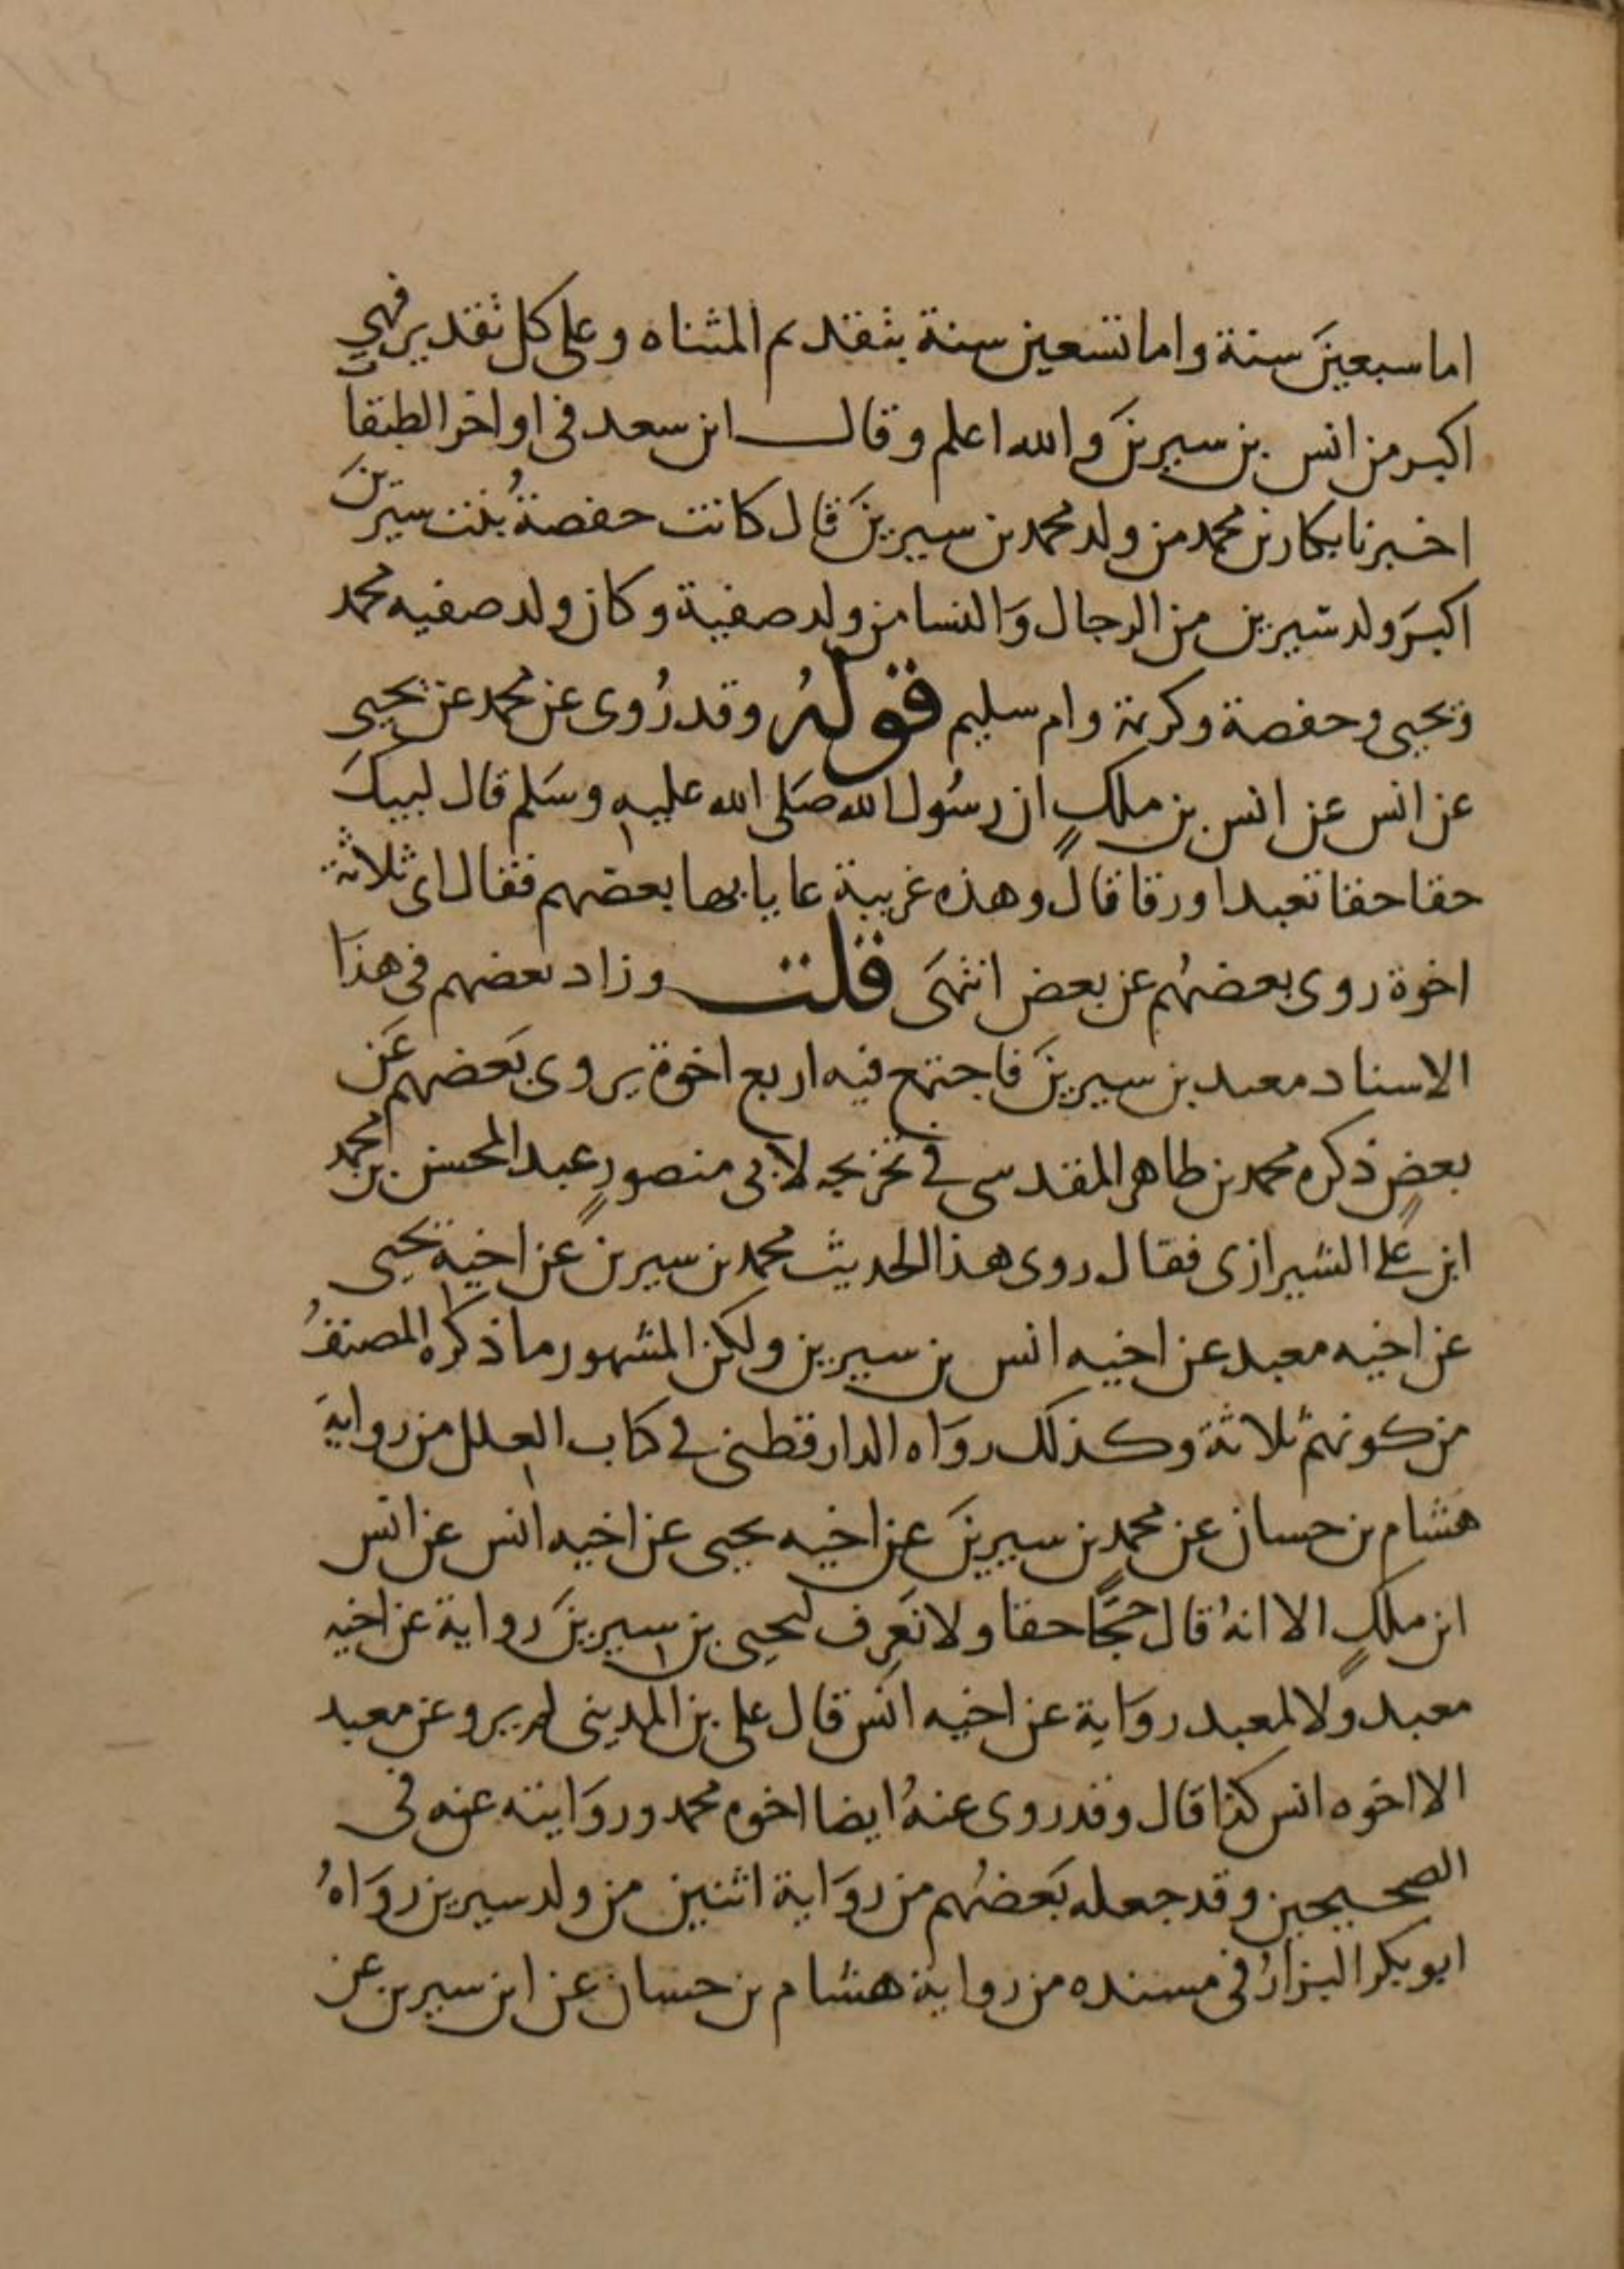 اما سبعينَ سنة واما تسعين سنة بتقديم المثناه وعلى كل تقدير فهي
اكبر من انس بن سيرينَ والله اعلم وقال ابن سعد فى اواخر الطبقاتَ
اخبرنا بكار بن محمد من ولد محمد بن سيرينَ قال كانت حفصةُ بنت سيرينَ
اكبرَ ولد سيرين من الرجال وَالنسا من ولد صفية وكان ولد صفيه محمد
ويحيى وحفصة وكريمة وام سليم قولهُ وقد رُوى عن محمد عن يحيى
عن انس عن انس بن ملكٍ ان رسُول الله صَلى الله عليه وسَلم قال لبيكَ
حقا حقا تعبدا ورقا قال وهذه غريبة عايا بها بعضهم فقال اى ثلاثة
اخوة روى بعضهُم عن بعض انتهَى قلت وزاد بعضهم فى هذا
الاسناد معبد بن سيرينَ فاجتمع فيه اربع اخوة يروى بَعضهم عَن
بعضٍ ذكره محمد بن طاهر المقدسى فى تخريجه لابى منصورٍ عبد المحسن بن محمد
ابن علے الشيرازى فقال روى هذا الحديث محمد بن سيرين عن اخيه يحيى
عن اخيه معبد عن اخيه انس بن سيرين ولكن المشهور ما ذكره المصنفُ
من كونهم ثلاثة وكذلك روَاه الدارقطنى فى كتاب العلل من روايةَ
هشام بن حسان عن محمد بن سيرينَ عن اخيه يحيى عن اخيه انس عن انس
ابن ملكٍ الا انهُ قال حجًّا حقا ولا نعرِف ليحيى بن سيرينَ رواية عن اخيه
معبد ولا لمعبد روَاية عن اخيه انس قال على بن المدينى لم يرو عن معبد
الا اخوه انس كذا قال وقد روى عنهُ ايضا اخوه محمد وروَايته عنه فى
الصحيحين وقد جعله بَعضهُم من روَاية اثنين من ولد سيرين روَاهُ
ابو بكر البزارُ فى مسنده من رواية هشام بن حسان عن ابن سيرين عن